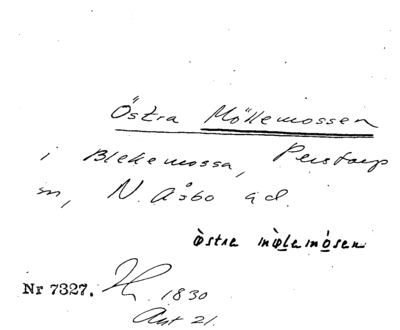 Östra Möllemossen
i Blekemossa, Perstorp
sn, N. Åsbo hd.
östra mølemosen
Nr 7327. 1830
Ant 21.